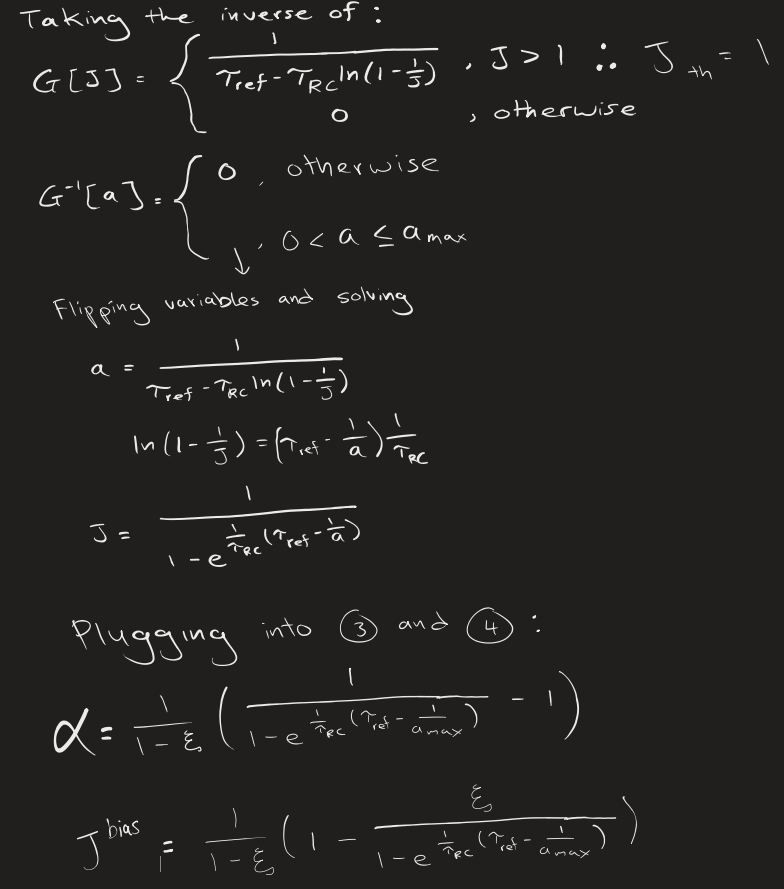 Taking the inverse of :
G[J] = { 1 / (τ_ref - τ_RC ln(1 - 1/J)) , J > 1 ∴ J_th = 1
0 , otherwise
G⁻¹[a] = { 0 , otherwise
↓ , 0 < a ≤ a_max
Flipping variables and solving
a = 1 / (τ_ref - τ_RC ln(1 - 1/J))
ln(1 - 1/J) = (τ_ref - 1/a) 1/τ_RC
J = 1 / (1 - e^(1/τ_RC (τ_ref - 1/a)))
Plugging into ③ and ④ :
α = 1/(1 - ξ) ( 1 / (1 - e^(1/τ_RC (τ_ref - 1/a_max))) - 1 )
J^bias = 1/(1 - ξ) ( 1 - ξ / (1 - e^(1/τ_RC (τ_ref - 1/a_max))) )